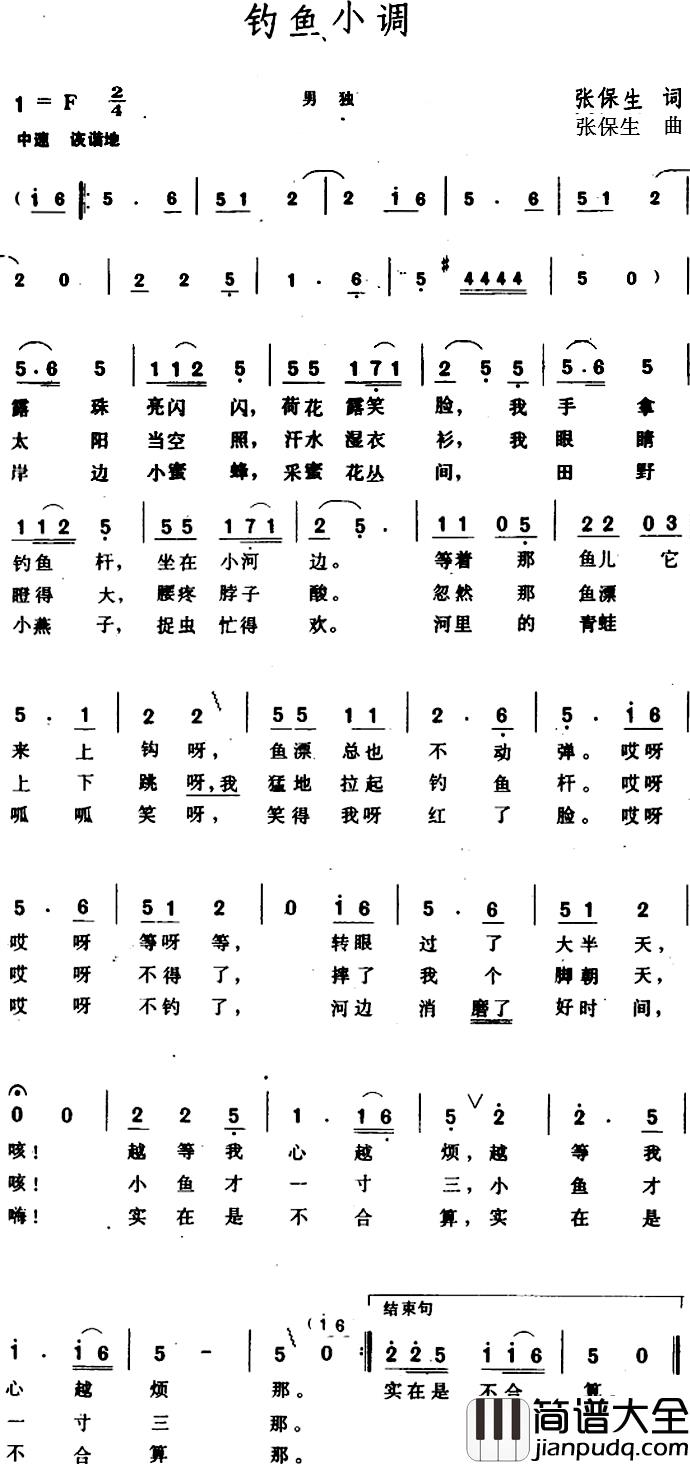 钓鱼小调
1 = F 2/4 男 独 张保生 词
中速 诙谐地 张保生 曲
( i 6 ‖: 5 . 6 | 5 1 2 | 2 i 6 | 5 . 6 | 5 1 2 |
2 0 | 2 2 5 | 1 . 6 | 5 #4 4 4 4 | 5 0 )
5 . 6 5 | 1 1 2 5 | 5 5 1 7 1 | 2 5 5 | 5 . 6 5
露 珠 亮闪 闪, 荷花 露笑 脸, 我 手 拿
太 阳 当空 照, 汗水 湿衣 衫, 我 眼 睛
岸 边 小蜜 蜂, 采蜜 花丛 间, 田 野
1 1 2 5 | 5 5 1 7 1 | 2 5 . | 1 1 0 5 | 2 2 0 3
钓鱼 杆, 坐在 小河 边。 等着 那 鱼儿 它
瞪得 大, 腰疼 脖子 酸。 忽然 那 鱼漂
小燕 子, 捉虫 忙得 欢。 河里 的 青蛙
5 . 1 | 2 2 | 5 5 1 1 | 2 . 6 | 5 . i 6
来 上 钩 呀, 鱼漂 总也 不 动 弹。 哎呀
上 下 跳 呀,我 猛地 拉起 钓 鱼 杆。 哎呀
呱 呱 笑 呀, 笑得 我呀 红 了 脸。 哎呀
5 . 6 | 5 1 2 | 0 i 6 | 5 . 6 | 5 1 2
哎 呀 等呀 等, 转眼 过 了 大半 天,
哎 呀 不得 了, 摔了 我 个 脚朝 天,
哎 呀 不钓 了, 河边 消 磨了 好时 间,
0 0 | 2 2 5 | 1 . 1 6 | 5 ∨ 2 | 2 . 5
咳! 越 等 我 心 越 烦, 越 等 我
咳! 小 鱼 才 一 寸 三, 小 鱼 才
嗨! 实 在 是 不 合 算, 实 在 是
结束句
i . i 6 | 5 - | 5 0 ( i 6 :‖ 2 2 5 i i 6 | 5 0 ‖
心 越 烦 那。 实在是 不合 算。
一 寸 三 那。
不 合 算 那。
简谱大全
jianpudq.com